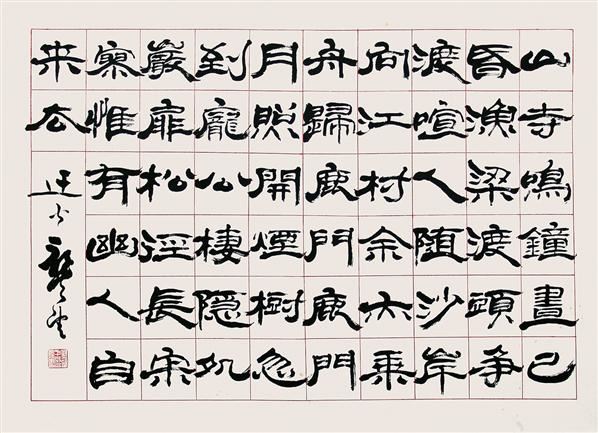 山寺鳴鐘晝已
昏漁梁渡頭争
渡喧人随沙岸
向江村余亦乘
舟歸鹿門鹿門
月照開煙樹忽
到龐公棲隐処
巖扉松徑長寂
寥惟有幽人自
来去